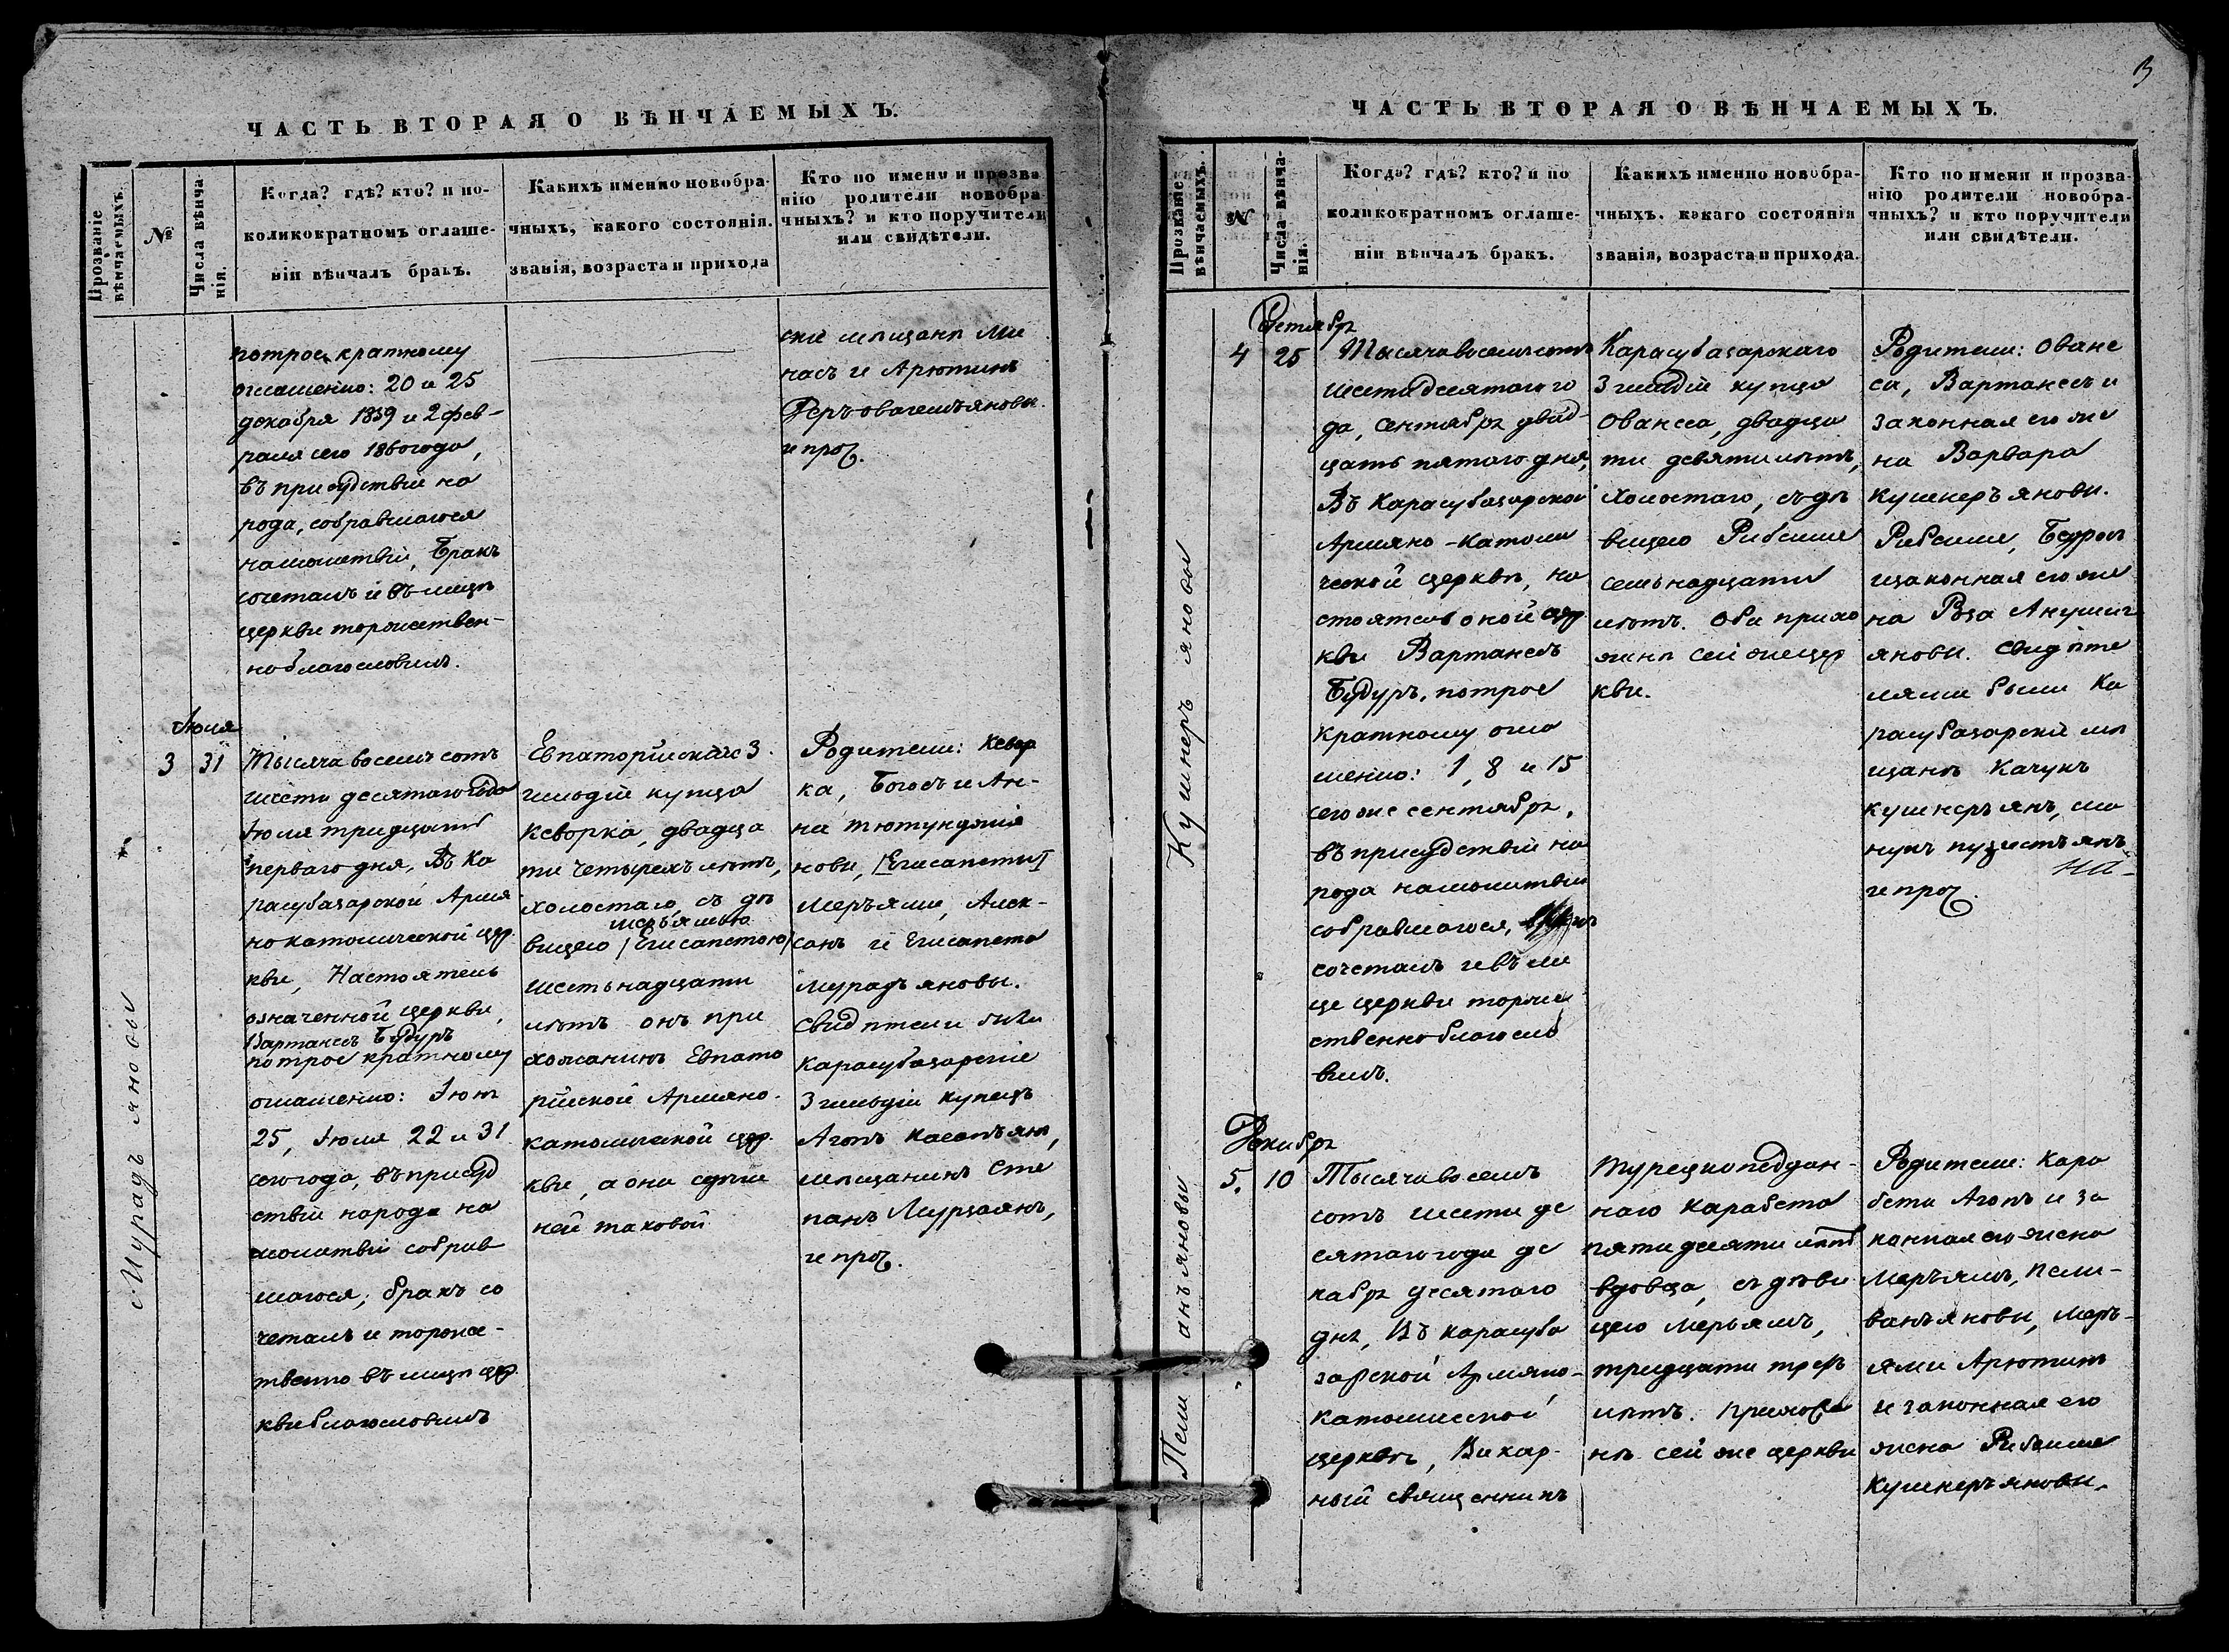 ЧАСТЬ ВТОРАЯ О ВѢНЧАЕМЫХЪ.
Прозваніе
вѣнчаемыхъ.
№
Числа вѣнча-
нія.
Когда? гдѣ? кто? и по-
коликократномъ оглаше-
ніи вѣнчалъ бракъ.
Какихъ именно новобра-
чныхъ, какого состоянія.
званія, возраста и прихода
Кто по имени и прозва
нію родители новобра-
чныхъ? и кто поручители
или свидѣтели.
потрое кратному
оглашенію: 20 и 25
декабря 1859 и 2 фев-
раля сего 1860 года,
въ присудствіи на
рода, собравшагося
на молитвіи, Бракъ
сочеталъ и въ лицѣ
церкви торжествен-
но благословилъ.
скіе мѣщанѣ Ми
насъ и Арютинъ
и проч.
Мурадъ яновы
Іюля
3 31
Тысяча восемь сотъ
шесть десятаго года
Іюля тридцать
перваго дня, Въ Ка
расубазарской Армя
но католической цер.
кви, Настоятель
означенной церкви,
Вартанесъ Будуръ
по трое кратному
оглашенію: Іюнѣ
25, Іюля 22 и 31
сего года, въ присуд
ствіи народа на
молитвіи собрав
шагося, бракъ со
четалъ и торже-
твенно въ лицѣ цер.
кви благословилъ
Евпаторійскаго 3.
гильдіи купца
Кеворка, двадца
ти четырехъ лѣтъ,
холостаго, съ дѣ
меръямою
вицею (Егисапетою)
шестьнадцати
лѣтъ онъ при
хожанинъ Евпато
рійской Армяно-
католической цер.
кви, а она здѣш
ней таковой
Родители: Кевор
ка, Богосъ и Ан-
на Тютунджія
нови, [Егисапеты]
Меръями, Алек-
санъ и Егисапета
Мурадъ яновы.
Свидѣтели были
Карасубазарскіе
3 гильдіи купецъ
Агопъ Касапъянъ,
мѣщанинъ Сте
панъ Мурзаянъ,
и проч.
3
ЧАСТЬ ВТОРАЯ О ВѢНЧАЕМЫХЪ.
Прозваніе
вѣнчаемыхъ.
№
Числа вѣнча-
нія.
Когда? гдѣ? кто? и по
коликократномъ оглаше-
ніи вѣнчалъ бракъ.
Какихъ именно новобра-
чныхъ. какаго состоянія
званія, возраста и прихода.
Кто по имени и прозва-
нію родители новобра-
чныхъ? и кто поручители
или свидѣтели.
Кушнеръ яновы
Сентябрѣ
4 25
Тысяча восемь сотъ
шестидесятаго го
да, Сентябрѣ двад-
цать пятаго дня,
Въ Карасубазарской
Армяно-Католи
ческой церквѣ, на
стоятель оной цер
кви Вартанесъ
Будуръ, потрое
кратному огла
шенію: 1, 8 и 15
сего же сентябрѣ,
въ присудствіи на
рода на молитвіи
собравшагося,
сочеталъ и въ ли
це церкви торже
ственно благосло
вилъ.
Карасубазарскаго
3 гильдіи купца
Ованеса, двадца
ти девяти лѣтъ,
холостаго, съ дѣ
вицею Рибсиме
семьнадцати
лѣтъ. Оби прихо
жанѣ сей же цер
кви.
Родители: Оване
са, Вартанесъ и
законная его же
на Варвара
Кушнеръянови.
Рибсиме, Бедрос
и законная его же
на Роза Акушиг
янови. Свидѣте
лями были Ка
расубазарскіе мѣ
щанѣ Качукъ
Кушнеръянъ,
и проч.
Пели анъяновы
Декабрѣ
5. 10
Тысяча восемь
сотъ шести де
сятаго года де
кабрѣ десятаго
днѣ, Въ Карасуба
зарской Армяно-
католической
церквѣ, Викар-
ный священникъ
Турецко поддан-
наго Карабета
пятидесяти лѣтъ
вдовца, съ дѣви
цею Меръямъ,
тридцати трехъ
лѣтъ. Прихожа
нѣ сей же церкви
Родители: Кара
бета Агопъ и за
конная его жена
Меръямъ, Пели-
ванъянови, Меръ-
ями Арютинъ
и законная его
жена Рибсиме
Кушнеръянови.